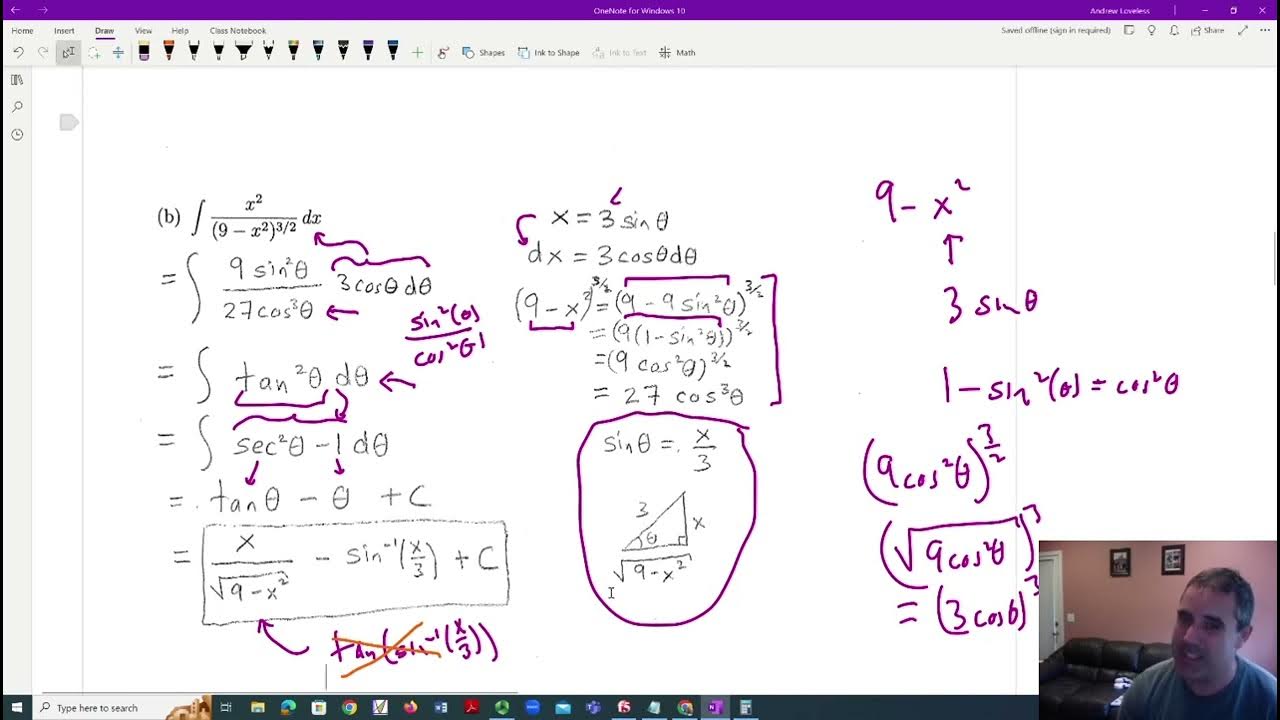 OneNote for Windows 10
Andrew Loveless
Home Insert Draw View Help Class Notebook
Saved offline (sign in required)
Share
Shapes Ink to Shape Ink to Text Math
(b) ∫ x²/(9 − x²)^{3/2} dx
= ∫ 9 sin²θ / 27 cos³θ 3 cosθ dθ
sin²(θ) / cos²θ
= ∫ tan²θ dθ
= ∫ sec²θ − 1 dθ
= tanθ − θ + C
= x/√(9 − x²) − sin⁻¹(x/3) + C
tan(sin⁻¹(x/3))
x = 3 sinθ
dx = 3 cosθ dθ
(9 − x²)^{3/2} = (9 − 9 sin²θ)^{3/2}
= (9(1 − sin²θ))^{3/2}
= (9 cos²θ)^{3/2}
= 27 cos³θ
sinθ = x/3
3
x
θ
√(9 − x²)
9 − x²
3 sinθ
1 − sin²(θ) = cos²θ
(9 cos²θ)^{3/2}
(√(9 cos²θ))³
= (3 cosθ)³
Type here to search